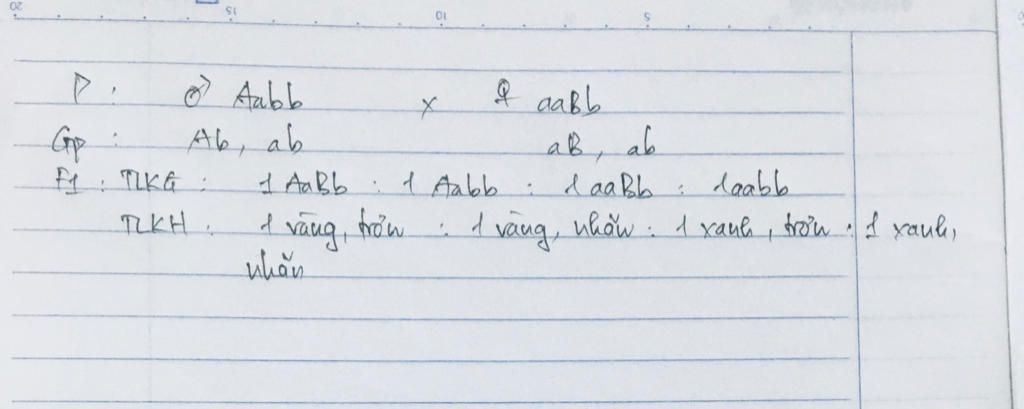 20 15 10 5
P : ♂ Aabb x ♀ aaBb
Gp : Ab, ab aB, ab
F1 : TLKG : 1 AaBb : 1 Aabb : 1 aaBb : 1aabb
TLKH : 1 vàng, trơn : 1 vàng, nhăn : 1 xanh, trơn : 1 xanh,
nhăn